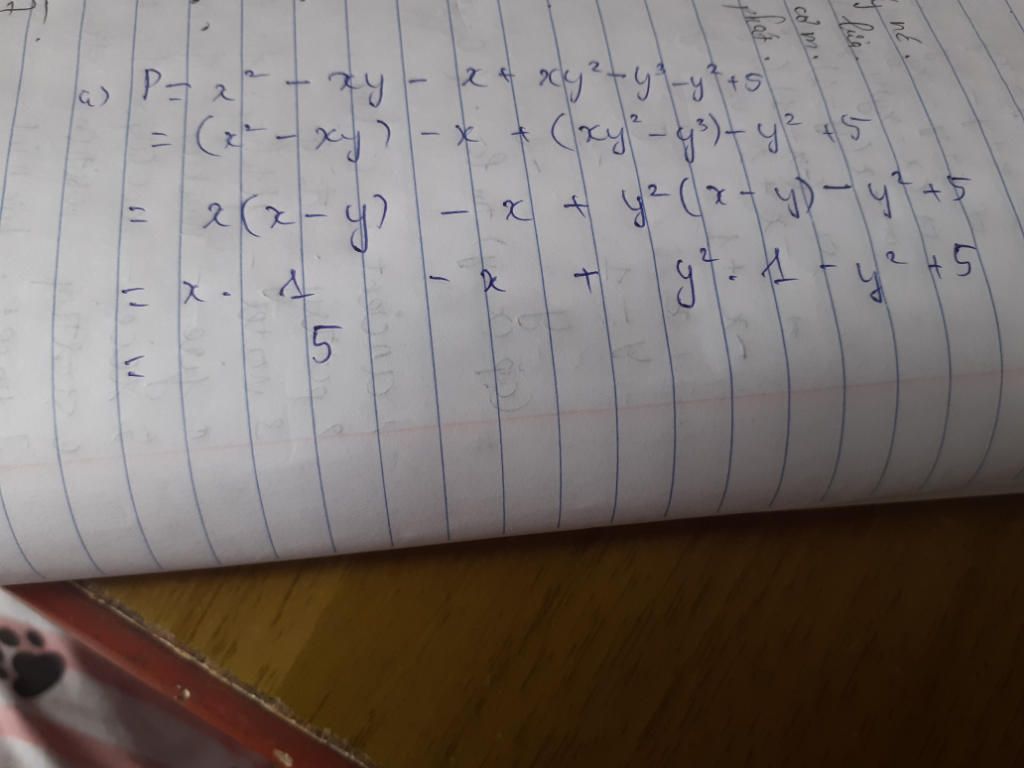 a) P = x² - xy - x + xy² - y³ - y² + 5
= (x² - xy) - x + (xy² - y³) - y² + 5
= x(x - y) - x + y²(x - y) - y² + 5
= x . 1 - x + y² . 1 - y² + 5
= 5